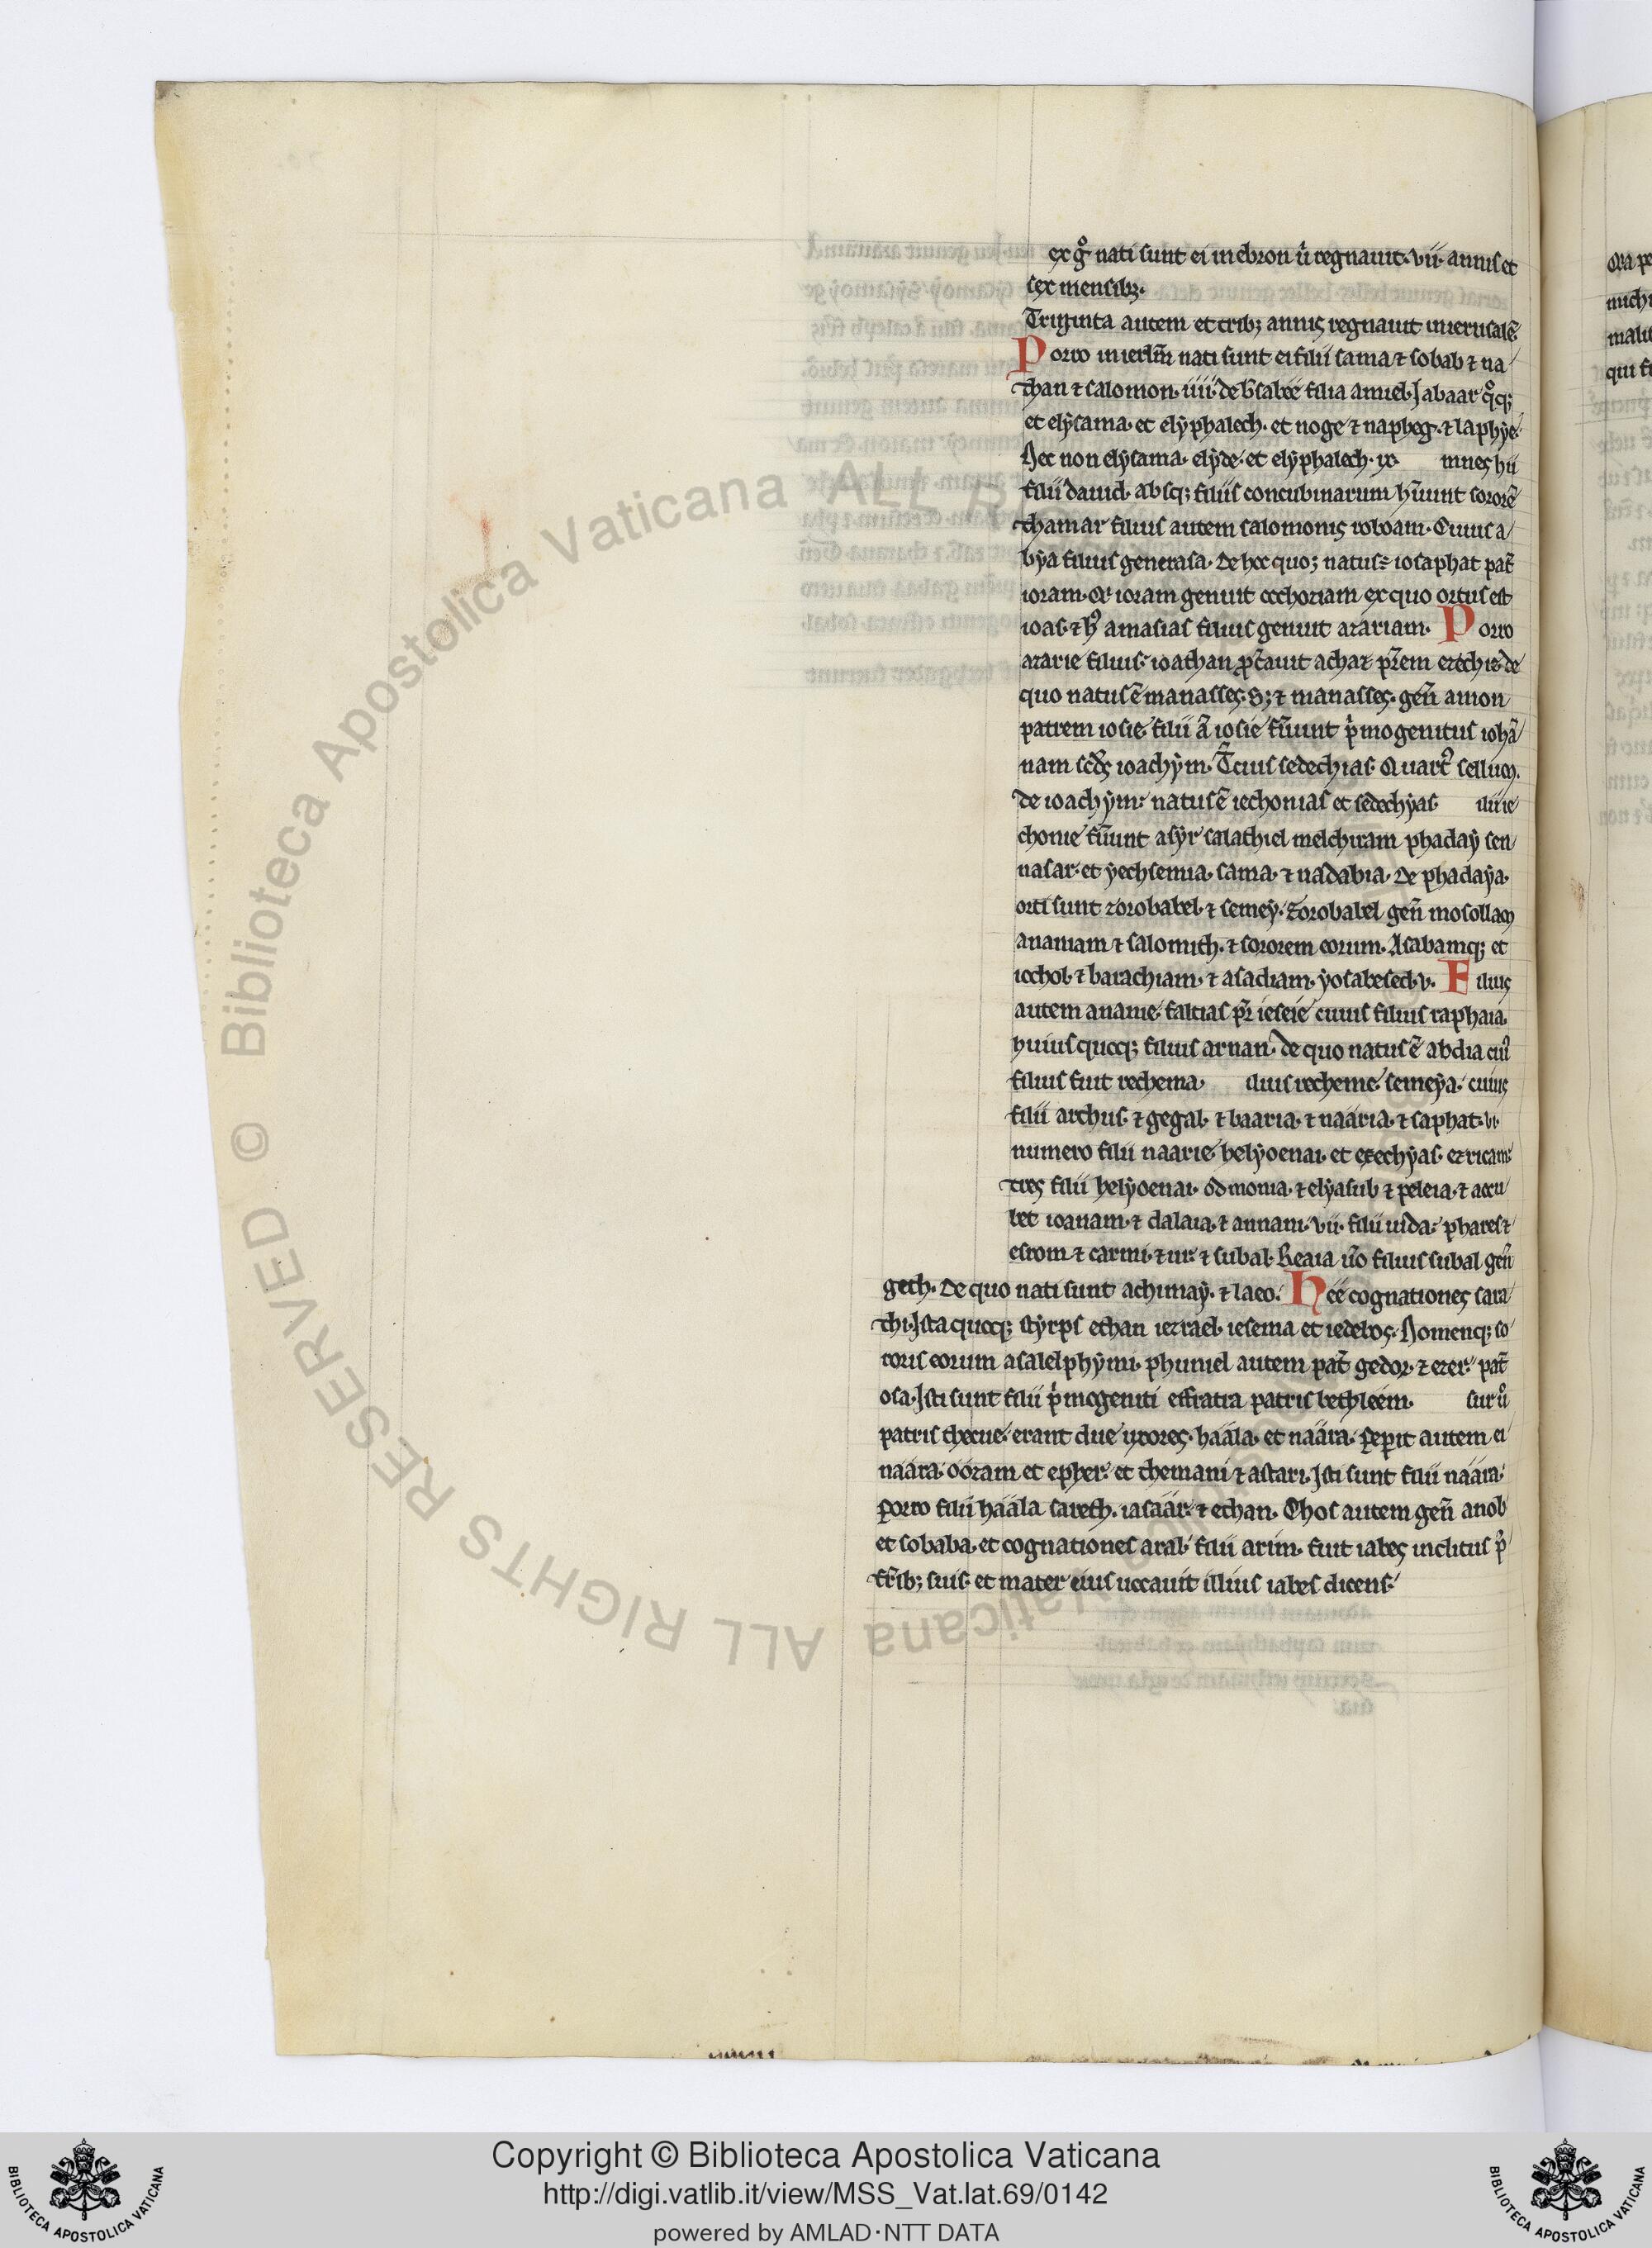 ex gͦ nati sunt ei in ebron ů regnauit· vii· annis et
sex mensibꝫ·
Triginta autem et tribꝫ annis regnauit in ierusalē
Porro in ierlm̄ nati sunt ei filii sama ⁊ sobab ⁊ na
than ⁊ salomon· iiii· de b̄sabee filia amiel· Jabaar qͦqꝫ
et elẏsama· et elẏphalech· et noge ⁊ napheg· ⁊ iaphẏe·
Nec non elẏsama· elẏde· et elẏphalech· ix· mnes hii
filii dauid· absqꝫ filiis concubinarum· hūunt sororē
thamar filius autem salomonis roboam· Cuius a
bẏa filius generasa· de hoc quoꝫ natus ē iosaphat pat̄
ioram· Qi ioram genuit occhoziam ex quo ortus est
ioas· ⁊ hͦ amasias filius genuit azariam· Porro
azarie filius· ioathan pc̄auit achaz pr̄em ezechie· de
quo natus ē manasses· Sꝫ ⁊ manasses· gen̄ amon
patrem iosie· filii ā iosie fūunt pͥmogenitus iohā
nam scd̄s ioachẏm· T̄cius sedechias· Quartꝰ sellum·
de ioachẏm· natus ē iechonias et sedechẏas· ilii ie
chonie fūunt asẏr salathiel melchiram phadaẏ sen
nasar· et ẏechsemia· sama· ⁊ nadabia· De phadaẏa·
orti sunt zorobabel· ⁊ semeẏ· Zorobabel gen̄ mosollam
ananiam ⁊ salomith· ⁊ sororem eorum· Asabamqꝫ et
iechol· ⁊ barachiam· ⁊ asadiam· ẏosabesed· v· Filius
autem ananie· faltias pr̄ ieseie cuius filius raphaia
huius quoqꝫ filius arnan· de quo natus ē abdia cuiꝰ
filius fuit rechema· ilius recheme· semeẏa· cuius
filii archus· ⁊ gegal· ⁊ baaria· ⁊ naaria· ⁊ saphat· vi·
numero filii naarie· helẏoenai· et ezechẏas· ezricam·
tres filii helẏoenai· odmonia· ⁊ elẏasub ⁊ peleia· ⁊ accu
bet ioanam· ⁊ dalaia· ⁊ annani· vii· filii iuda· phares ⁊
esrom ⁊ carmi· ⁊ ur· ⁊ subal· Reaia ůo filius subal gen̄
geth· De quo nati sunt achimaẏ· ⁊ laeo· Hee cognationes sara
thi· Ista quoqꝫ stẏrps ethan iezrael· iesema et iedebos· Nomenqꝫ so
roris eorum asalelphẏmi· phuniel autem pat̄ gedor· ⁊ ezer· pat̄
osa· Isti sunt filii pͥmogeniti effratia patris bethleem· sur ů
patris thecue· erant due uxores· haala· et naara· Peperit autem ei
naara· oozam et epher· et themani ⁊ astari· Isti sunt filii naara·
Porro filii haala sareth· iasaar· ⁊ ethan· Chos autem gen̄ anob
et sobaba· et cognationes aral· filii arim· fuit iabes inclitus p̄
fr̄ibꝫ suis· et mater eius uocauit illius iabes dicens·
Copyright © Biblioteca Apostolica Vaticana
http://digi.vatlib.it/view/MSS_Vat.lat.69/0142
powered by AMLAD·NTT DATA